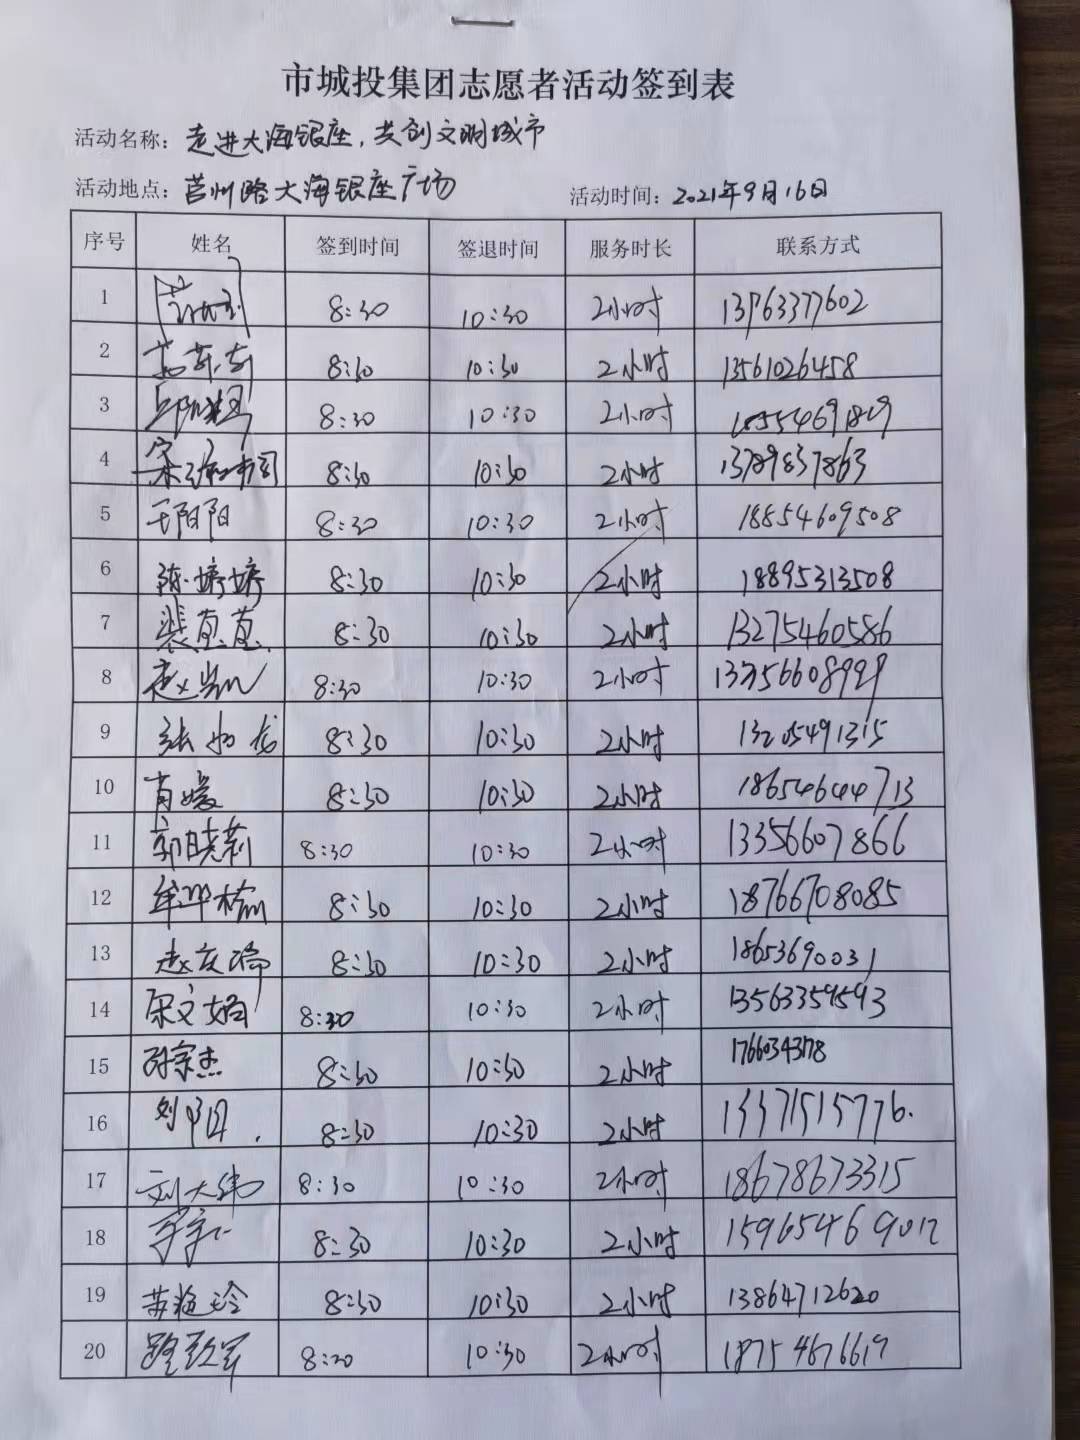 市城投集团志愿者活动签到表
活动名称：走进大海银座，共创文明城市
活动地点：莒州路大海银座广场 活动时间：2021年9月16日
序号 姓名 签到时间 签退时间 服务时长 联系方式
1 8:30 10:30 2小时 13963377602
2 8:30 10:30 2小时 13561026458
3 8:30 10:30 2小时
4 8:30 10:30 2小时 13789837863
5 王阳阳 8:30 10:30 2小时 18854609508
6 陈婷婷 8:30 10:30 2小时 18895313508
7 8:30 10:30 2小时 13275460586
8 赵凯 8:30 10:30 2小时
9 8:30 10:30 2小时 13205491315
10 肖媛 8:30 10:30 2小时 18654644713
11 郭晓莉 8:30 10:30 2小时 13356607866
12 8:30 10:30 2小时 18766708085
13 8:30 10:30 2小时 18653690031
14 8:30 10:30 2小时 13563359593
15 孙宗杰 8:30 10:30 2小时
16 8:30 10:30 2小时 13371515776.
17 刘大纬 8:30 10:30 2小时 18678673315
18 8:30 10:30 2小时 15965469012
19 8:30 10:30 2小时 13864712620
20 10:30 2小时 18754676619